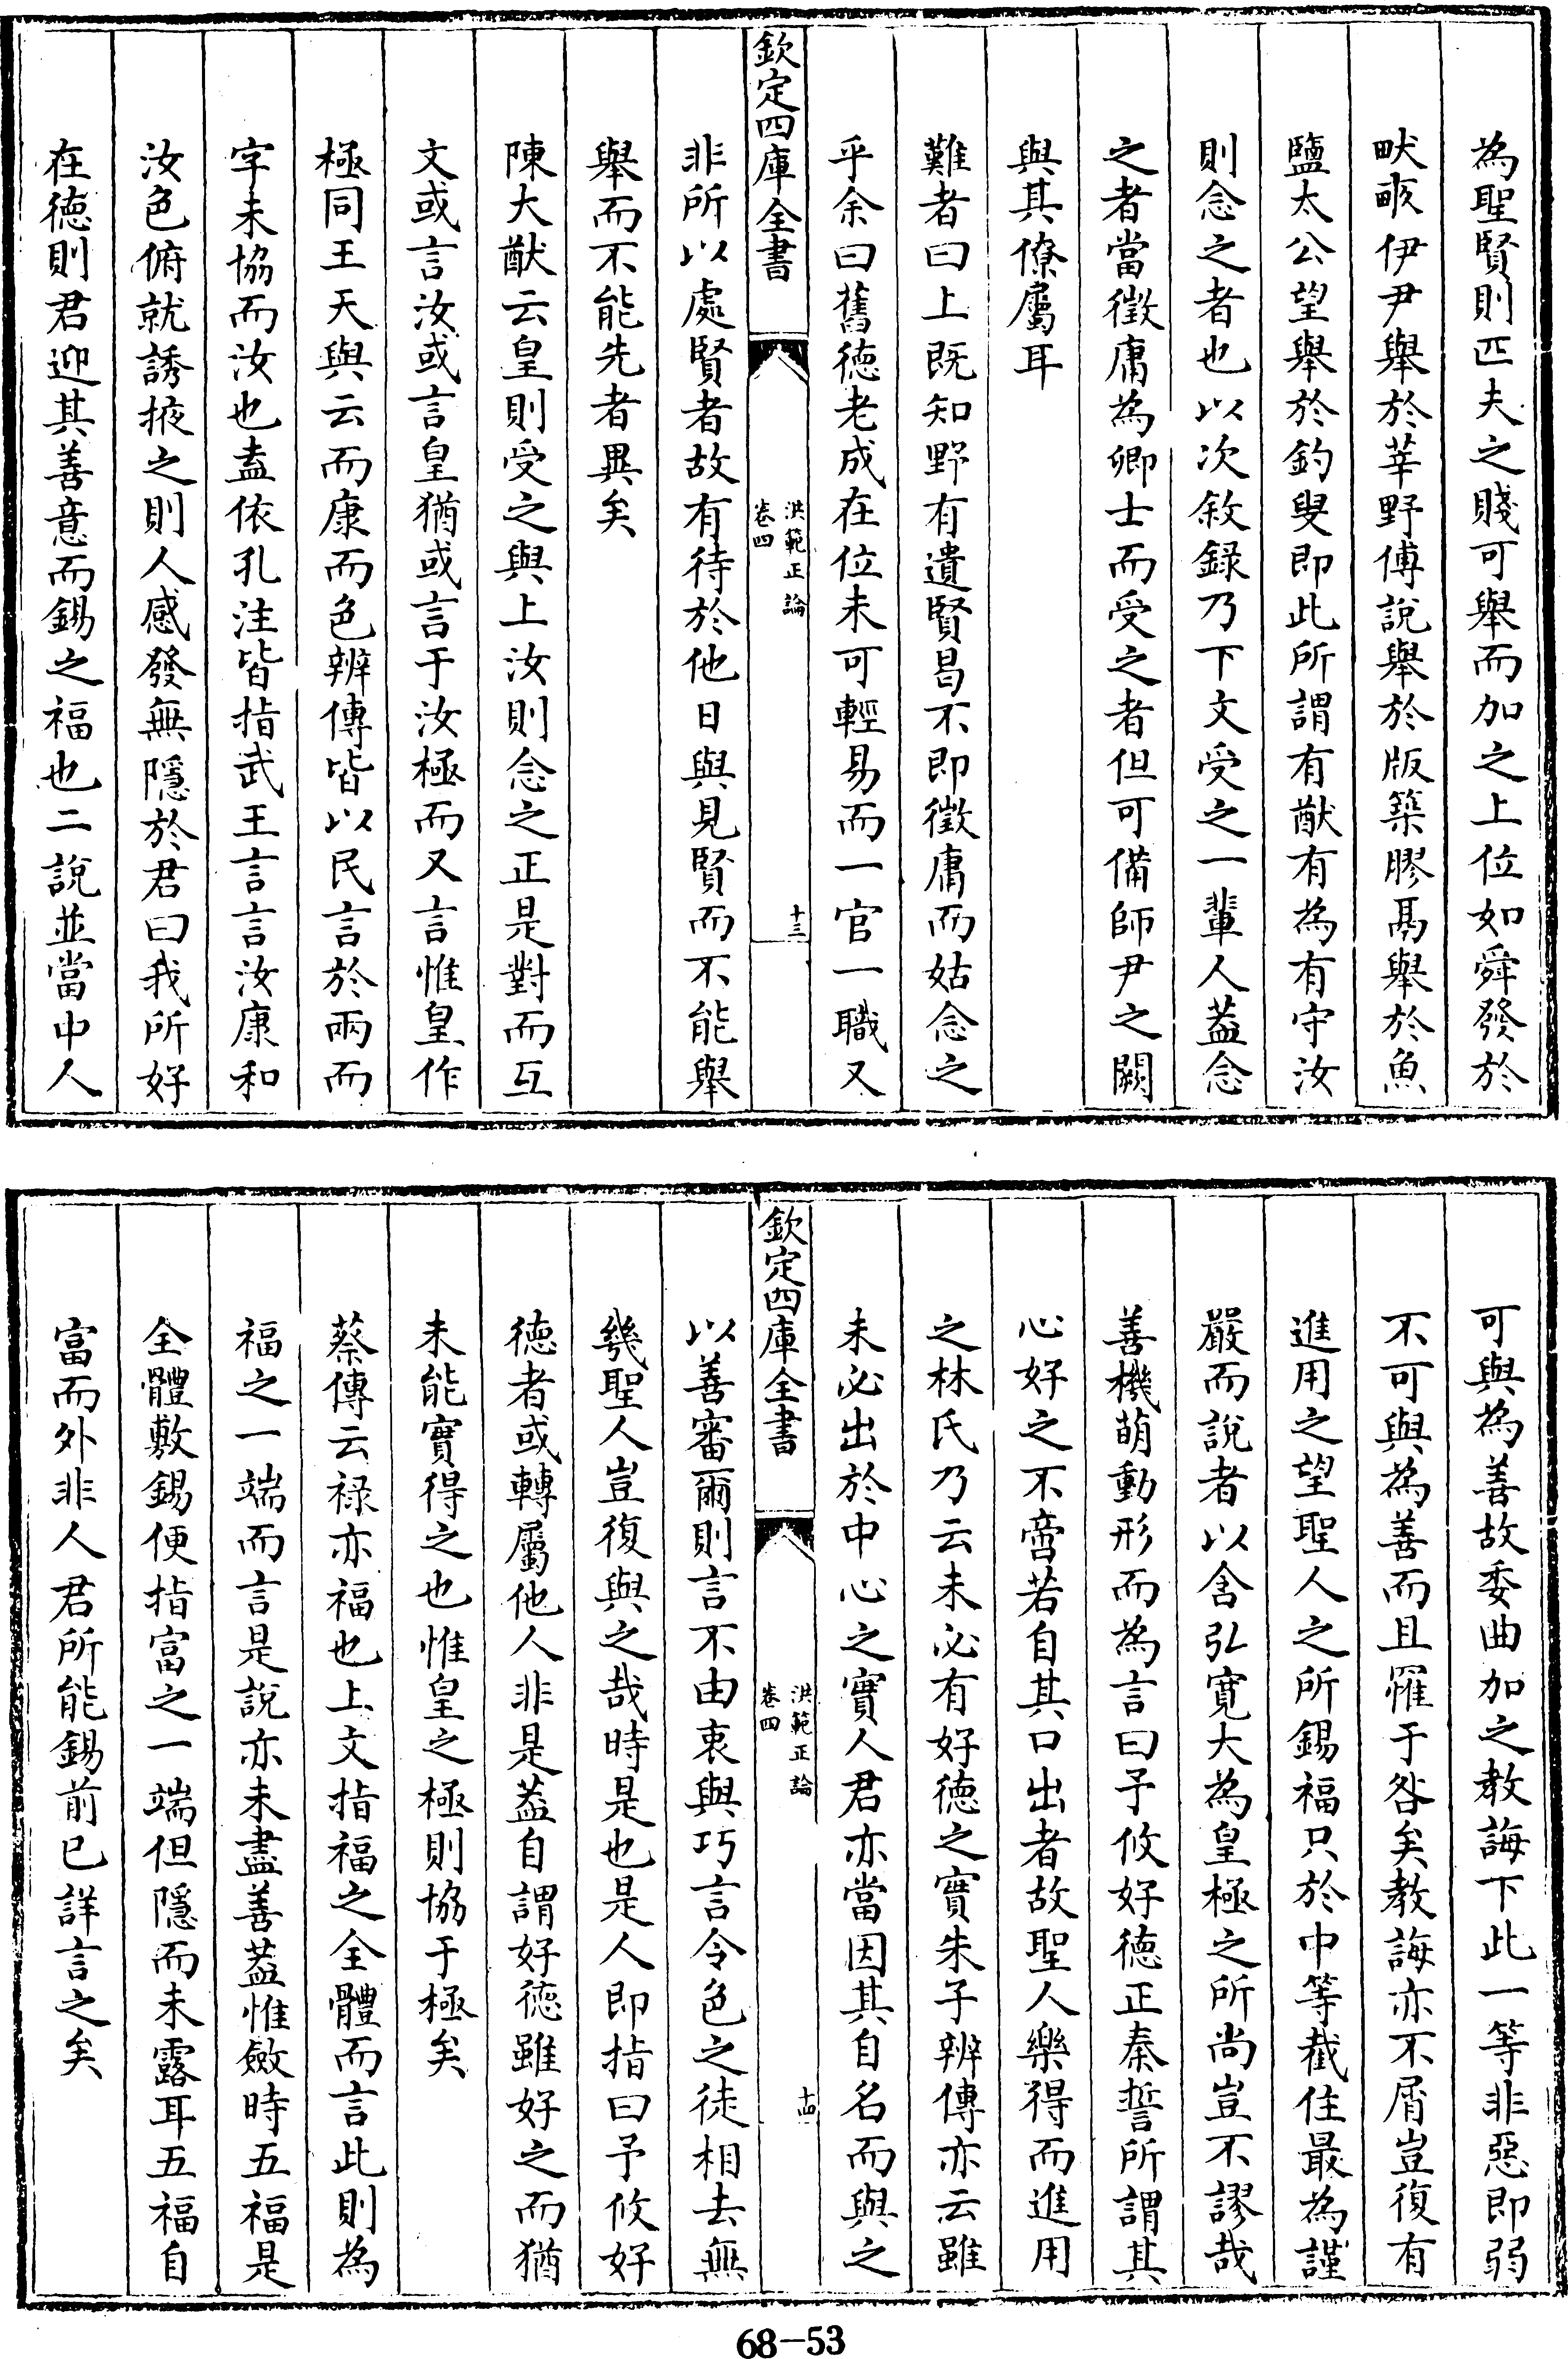 為聖賢則匹夫之賤可舉而加之上位如舜發於
畎畞伊尹舉於莘野傅說舉於版築膠鬲舉於魚
鹽太公望舉於釣叟即此所謂有猷有為有守汝
則念之者也以次敘録乃下文受之一輩人葢念
之者當徵庸為卿士而受之者但可備師尹之闕
與其僚屬耳
難者曰上既知野有遺賢曷不即徵庸而姑念之
乎余曰舊徳老成在位未可輕易而一官一職又
欽定四庫全書
洪範正論
卷四
十三
非所以處賢者故有待於他日與見賢而不能舉
舉而不能先者異矣
陳大猷云皇則受之與上汝則念之正是對而互
文或言汝或言皇猶或言于汝極而又言惟皇作
極同王天與云而康而色辨傳皆以民言於兩而
字未協而汝也盍依孔注皆指武王言言汝康和
汝色俯就誘掖之則人感發無隱於君曰我所好
在徳則君迎其善意而錫之福也二說並當中人
可與為善故委曲加之教誨下此一等非惡即弱
不可與為善而且罹于咎矣教誨亦不屑豈復有
進用之望聖人之所錫福只於中等截住最為謹
嚴而說者以含弘寛大為皇極之所尚豈不謬哉
善機萌動形而為言曰予攸好徳正秦誓所謂其
心好之不啻若自其口出者故聖人樂得而進用
之林氏乃云未必有好徳之實朱子辨傳亦云雖
未必出於中心之實人君亦當因其自名而與之
欽定四庫全書
洪範正論
卷四
十四
以善審爾則言不由衷與巧言令色之徒相去無
幾聖人豈復與之哉時是也是人即指曰予攸好
徳者或轉屬他人非是葢自謂好徳雖好之而猶
未能實得之也惟皇之極則協于極矣
蔡傳云禄亦福也上文指福之全體而言此則為
福之一端而言是說亦未盡善葢惟斂時五福是
全體敷錫便指富之一端但隱而未露耳五福自
富而外非人君所能錫前已詳言之矣
68-53